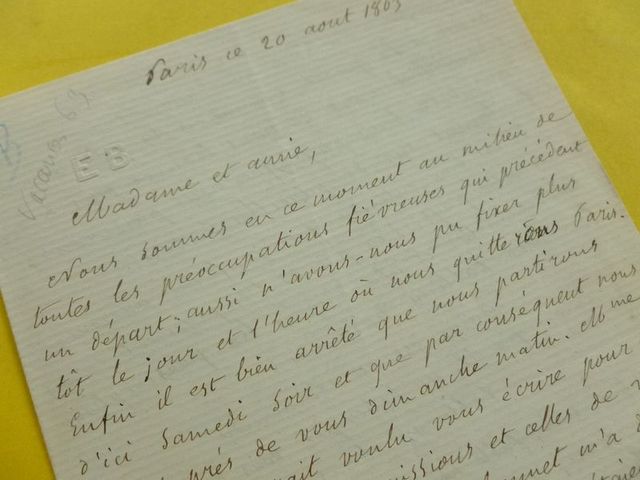 Paris ce 20 aout 1863
Vacances 63.
EB
Madame et amie,
Nous sommes en ce moment au milieu de
toutes les préoccupations fiévreuses qui précédent
un départ; aussi n'avons-nous pu fixer plus
tôt le jour et l'heure où nous quitterons Paris.
Enfin il est bien arrêté que nous partirons
d'ici Samedi soir et que par conséquent nous
près de vous dimanche matin. Mme
ait voulu vous écrire pour
issions et celles de
m'a